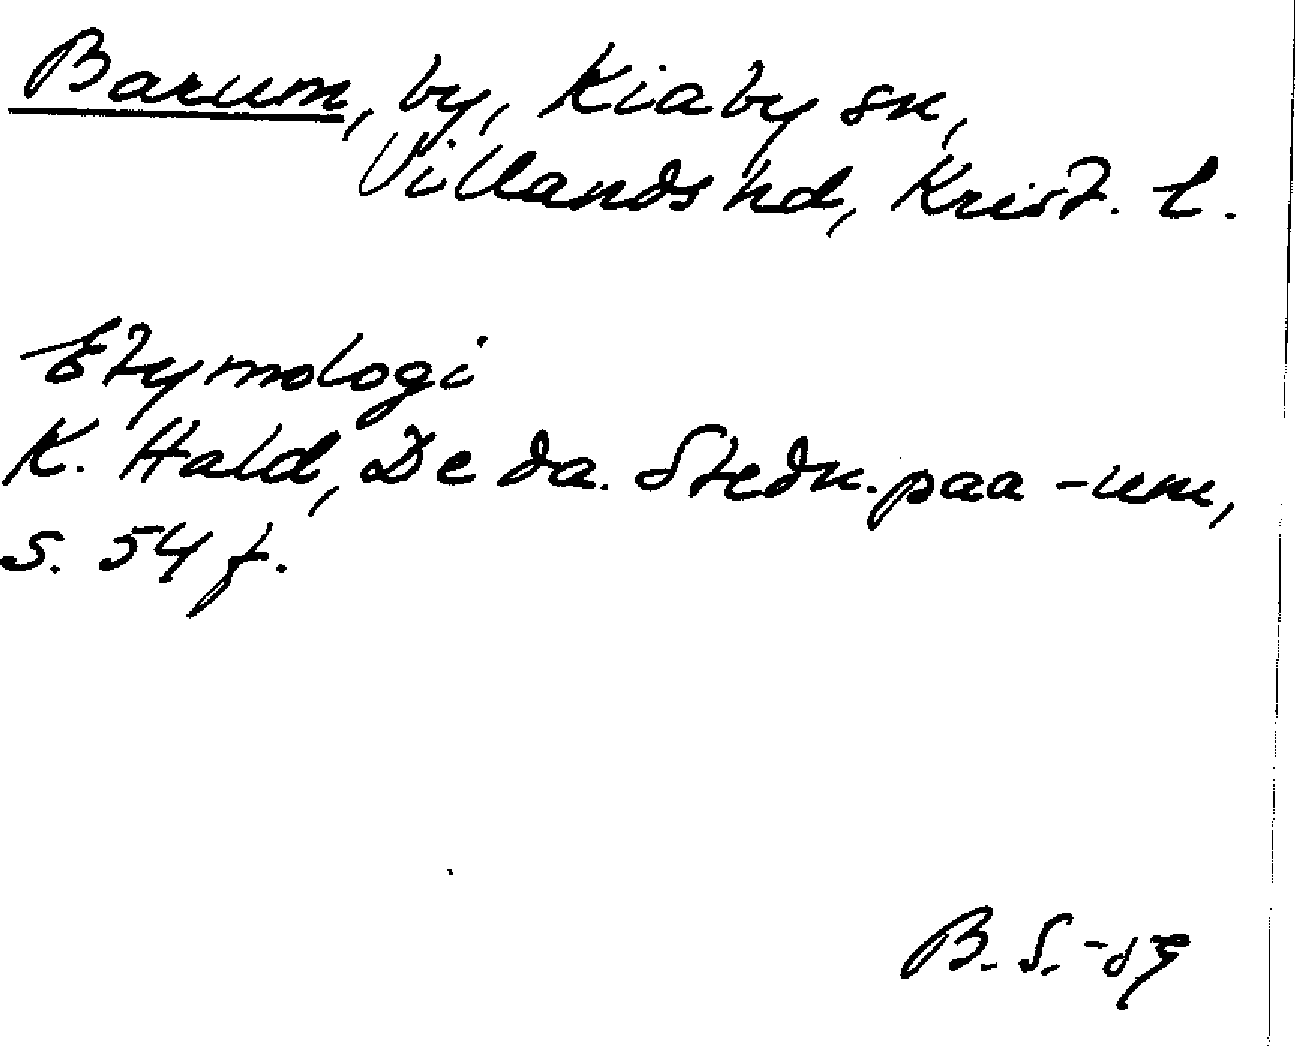 Barum, by, Kiaby sn,
Villands hd, Krist. l.
Etymologi
K. Hald, De da. Stedn. paa -um,
s. 54 f.
B. S.